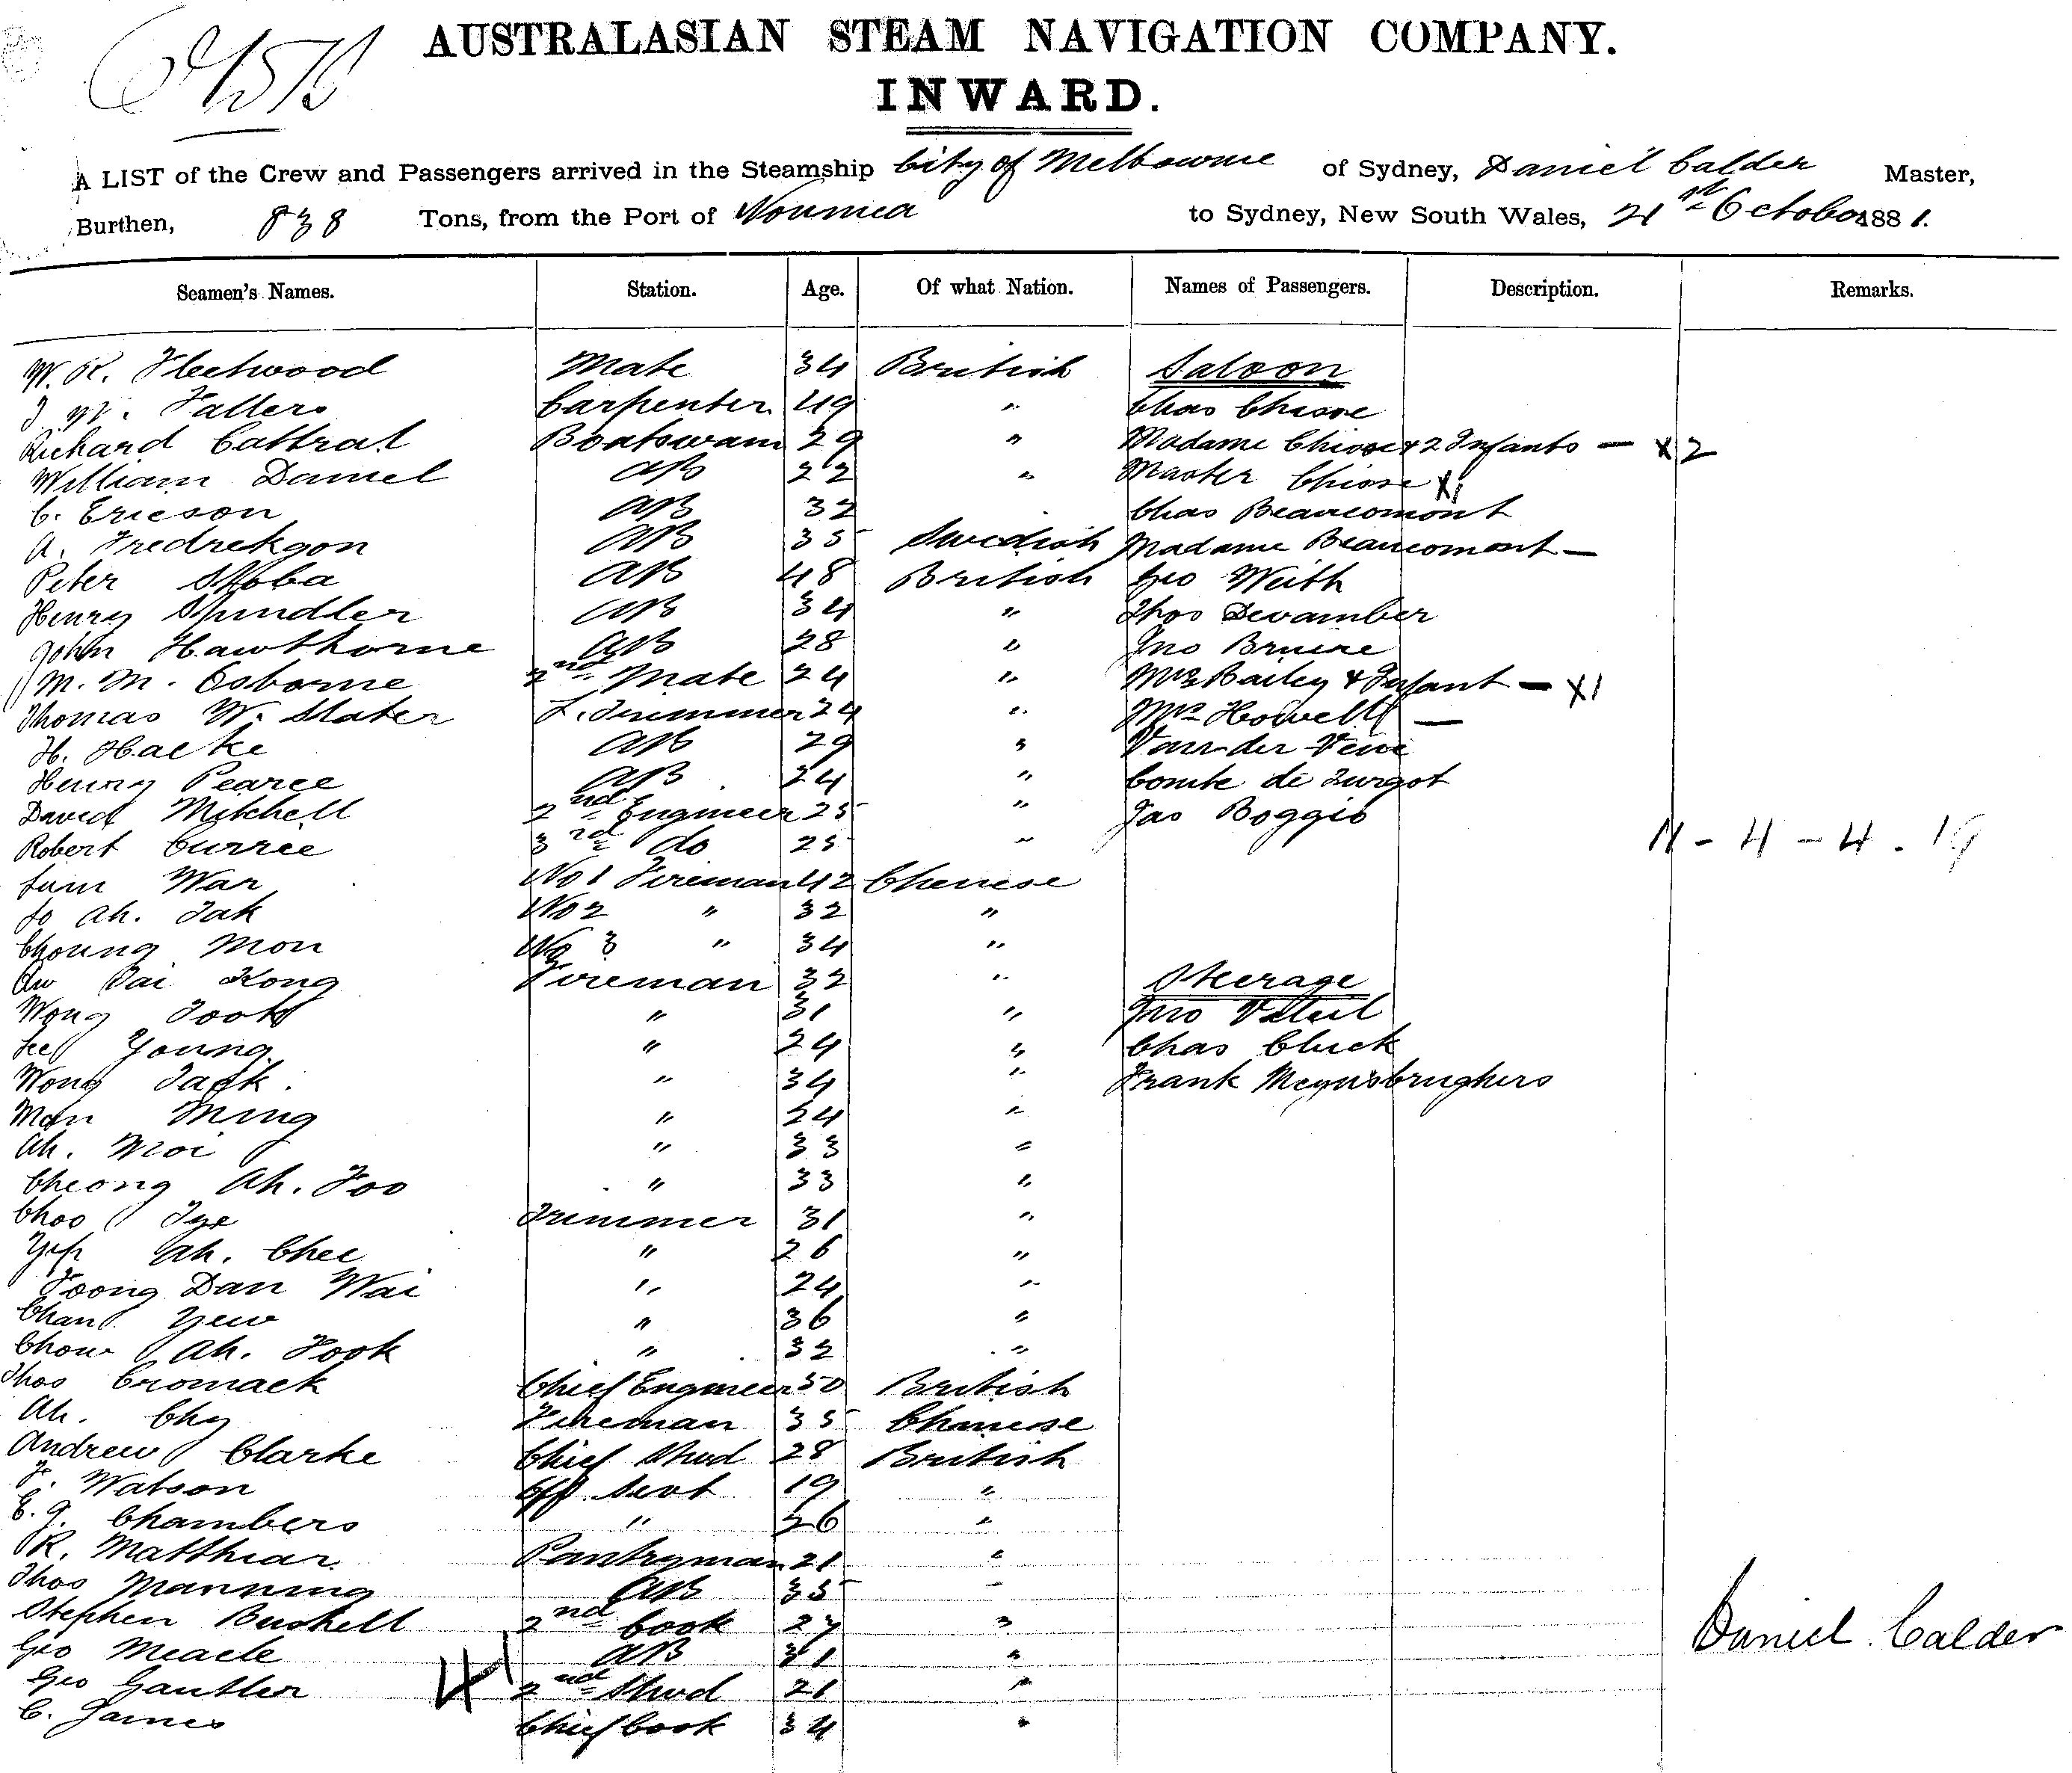 AUSTRALASIAN STEAM NAVIGATION COMPANY.
INWARD.
A LIST of the Crew and Passengers arrived in the Steamship City of Melbourne of Sydney, Daniel Calder Master,
Burthen, 838 Tons, from the Port of Noumea to Sydney, New South Wales, 21st October 1881.
Seamen's Names. Station. Age. Of what Nation. Names of Passengers. Description. Remarks.
W. R. Fleetwood Mate 34 British Saloon
J. W. Fallers Carpenter 49 " Chas Chiose
Richard Cattral Boatswain 29 " Madame Chiose & 2 Infants — X2
William Daniel AB 22 " Master Chiose X1
C. Ericson AB 32 Chas Beaucomont
A. Fredrekson AB 35 Swedish Madame Beaucomont —
Peter Skoba AB 48 British Geo Weith
Henry Spindler AB 34 " Thos Devamber
John Hawthorne AB 28 " Jno Bruere
M. M. Osborne 2nd Mate 24 " Mrs Bailey & Infant — X1
Thomas W. Slater L. Trimmer 24 " Mrs Howell —
H. Hacke AB 29 " Van der Veue
Henry Pearce AB 24 " Comte de Turgot
David Mitchell 2nd Engineer 25 " Jas Boggio
Robert Currie 3rd do 25 " 11 - 4 - 4 . 19
War No 1 Fireman 42 Chinese
Ah. Tak No 2 " 32 "
Choung Mon No 3 " 34 "
Aw Tai Kong Fireman 32 " Steerage
Wong Took " 31 " Jno
Lee Young " 24 " Chas Cluck
Wong Tack. " 34 " Frank
Man Ming " 24 "
Ah. Moi " 33 "
Cheong Ah. Foo " 33 "
Choo Tye Trimmer 31 "
Yep Ah. Chee " 26 "
Foong Dan Wai " 24 "
Chan Yew " 36 "
Chow Ah. Fook " 32 "
Thos Cromack Chief Engineer 50 British
Ah. Chy Fireman 35 Chinese
Andrew Clarke Chief Stwd 28 British
F. Watson Off. Servt 19 "
E. G. Chambers " 26 "
R. Matthiar Pantryman 21 "
Thos Manning AB 35 "
Stephen Bushell 2nd Cook 27 "
Geo Meacle AB 31 " Daniel Calder
Geo Gautler 2nd Stwd 21 "
C. James Chief Cook 34 "